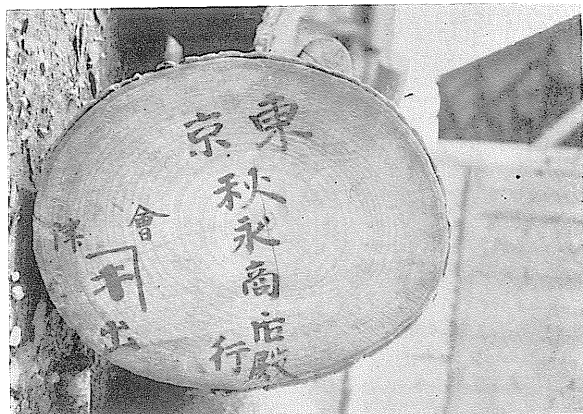 東京
秋永商店殿
行
會津
出